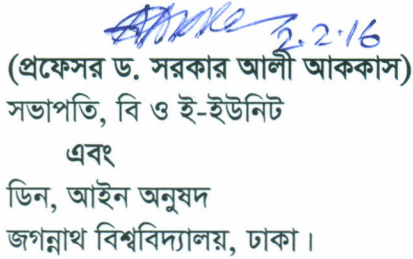 2.2.16
(প্রফেসর ড. সরকার আলী আককাস)
সভাপতি, বি ও ই-ইউনিট
এবং
ডিন, আইন অনুষদ
জগন্নাথ বিশ্ববিদ্যালয়, ঢাকা।